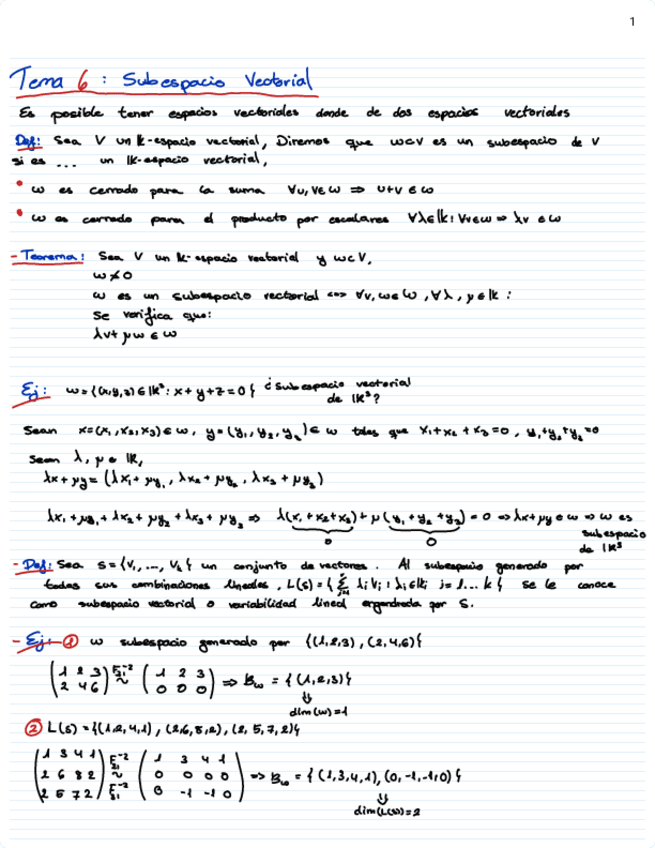 1
Tema 6 : Subespacio Vectorial
Es posible tener espacios vectoriales donde de dos espacios vectoriales
Def: Sea V un k-espacio vectorial, Diremos que w⊂V es un subespacio de V
si es ... un lk-espacio vectorial,
• w es cerrado para la suma ∀u,v∈w ⇒ u+v ∈ w
• w es cerrado para el producto por escalares ∀λ∈lk; ∀v∈w ⇒ λv ∈w
- Teorema: Sea V un lk-espacio vectorial y w⊂V,
w≠0
w es un subespacio vectorial <=> ∀v,w∈w, ∀λ,μ∈lk :
Se verifica que:
λv+ μw ∈ w
Ej: w={(x,y,z)∈lR³: x+y+z=0} ¿subespacio vectorial
de lR³?
Sean x=(x₁,x₂,x₃)∈w, y=(y₁,y₂,y₃)∈ w tales que x₁+x₂+x₃=0, y₁+y₂+y₃=0
Sean λ, μ ∈ lR,
λx+μy=(λx₁+μy₁, λx₂+μy₂, λx₃+μy₃)
λx₁+μy₁+λx₂+μy₂+λx₃+μy₃ ⇒ λ(x₁+x₂+x₃)+μ(y₁+y₂+y₃)=0 ⇒λx+μy∈w ⇒ w es
0 0 subespacio
de lR³
- Def: Sea S={V₁,..., Vₖ} un conjunto de vectores. Al subespacio generado por
todas sus combinaciones lineales, L(s)={Σ λᵢVᵢ : λᵢ∈lk; i=1...k} se le conoce
como subespacio vectorial o variabilidad lineal engendrada por S.
- Ej: ① w subespacio generado por {(1,2,3),(2,4,6)}
(1 2 3) F₂₁⁻² (1 2 3) ⇒ Bw = {(1,2,3)}
(2 4 6) ~ (0 0 0) ⇓
dim(w)=1
② L(s)={(1,2,4,1),(2,6,8,2),(2,5,7,2)}
(1 3 4 1) F₂₁⁻² (1 3 4 1)
(2 6 8 2) ~ (0 0 0 0) ⇒ Bw = {(1,3,4,1),(0,-1,-1,0)}
(2 5 7 2) F₃₁⁻² (0 -1 -1 0) ⇓
dim(L(s))=2